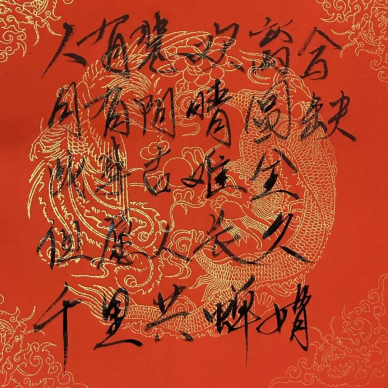 人有悲欢离合
月有阴晴圆缺
此事古难全
但愿人长久
千里共婵娟